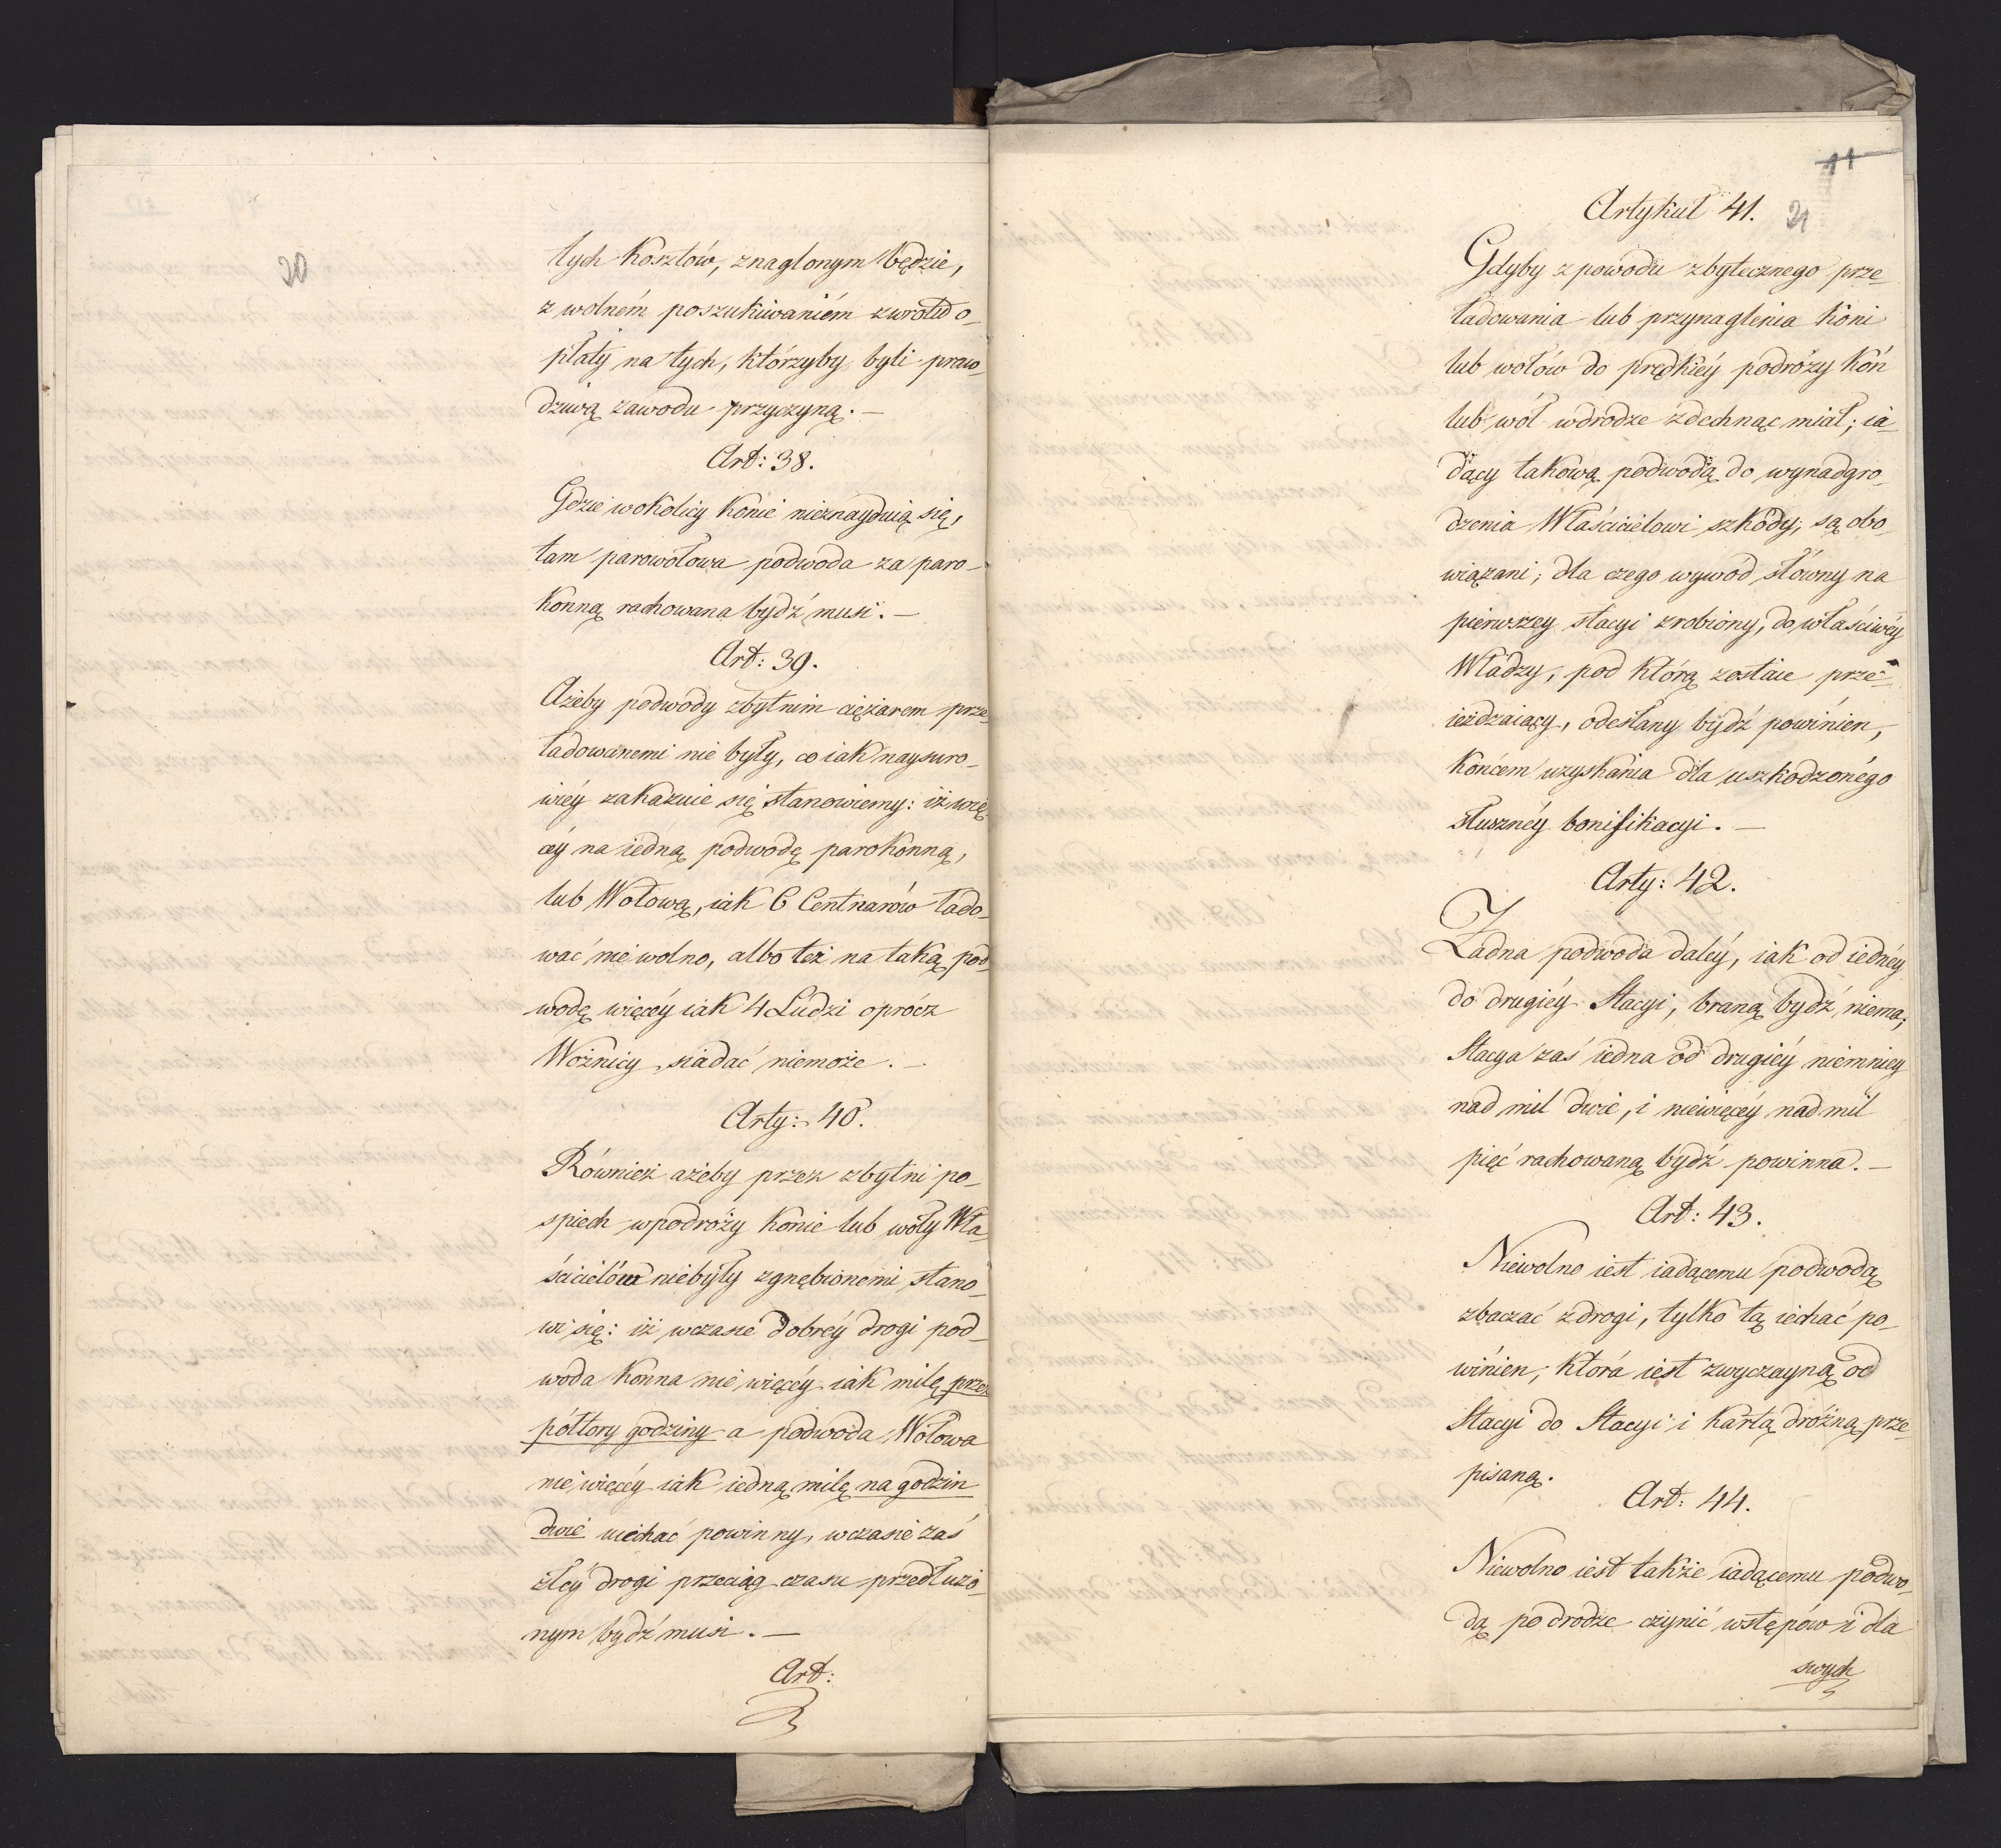 20
tych kosztów, znaglonym będzie,
z wolném poszukiwaniém zwrotu o-
płaty na tych, którzyby byli praw-
dziwą zawodu przyczyną. —
Art: 38.
Gdzie wokolicy konie nieznayduią się,
tam parowołowa podwoda za paro-
konną rachowana bydź musi. —
Art: 39.
Ażeby podwody zbytnim ciężarem prze-
ładowanemi nie były, co iak naysuro-
wiéy zakazuie się stanowiemy: iż wię-
céy na iedną podwodę parokonną,
lub Wołową, iak 6 Centnarów łado-
wać nie wolno, albo też na taką pod-
wodę więcéy iak 4 Ludzi oprócz
Woźnicy, siadać niemoże. —
Arty: 40.
Również ażeby przez zbytni po-
spiech wpodróży konie lub woły Wła-
ścicielów niebyły zgnębionemi stano-
wi się: iż wczasie dobréy drogi pod-
woda konna nie więcéy iak milę przez
półtory godziny a podwoda Wołowa
nie więcéy iak iedną milę na godzin
dwie uiechać powinny, wczasie zaś
złéy drogi przeciąg czasu przedłużo-
nym bydź musi. —
Art:
11
Artykuł 41.
21
Gdyby z powodu zbytecznego prze-
ładowania lub przynaglenia koni
lub wołów do prędkiéy podróży koń
lub wół wdrodze zdechnąć miał; ia-
dący takową podwodą do wynadgro-
dzenia Właścicielowi szkody, są obo-
wiązani; dla czego wywód słowny na
pierwszey stacyi zrobiony, do właściwéy
Władzy, pod którą zostaie prze-
ieżdzaiący, odesłany bydź powinien,
końcem uzyskania dla uszkodzonégo
słusznéy bonifikacyi. —
Arty: 42.
Żadna podwoda daléy, iak od iednéy
do drugiéy Stacyi, braną bydź niema;
Stacya zaś iedna od drugiéy niemniey
nad mil dwie, i niewięcéy nad mil
pięć rachowaną bydź powinna. —
Art: 43.
Niewolno iest iadącemu podwodą
zbaczać z drogi, tylko tą iechać po-
winien, która iest zwyczayną od
Stacyi do Stacyi i kartą dróżną prze-
pisaną.
Art: 44.
Niewolno iest także iadącemu podwo-
dą po drodze czynić wstępów i dla
swych